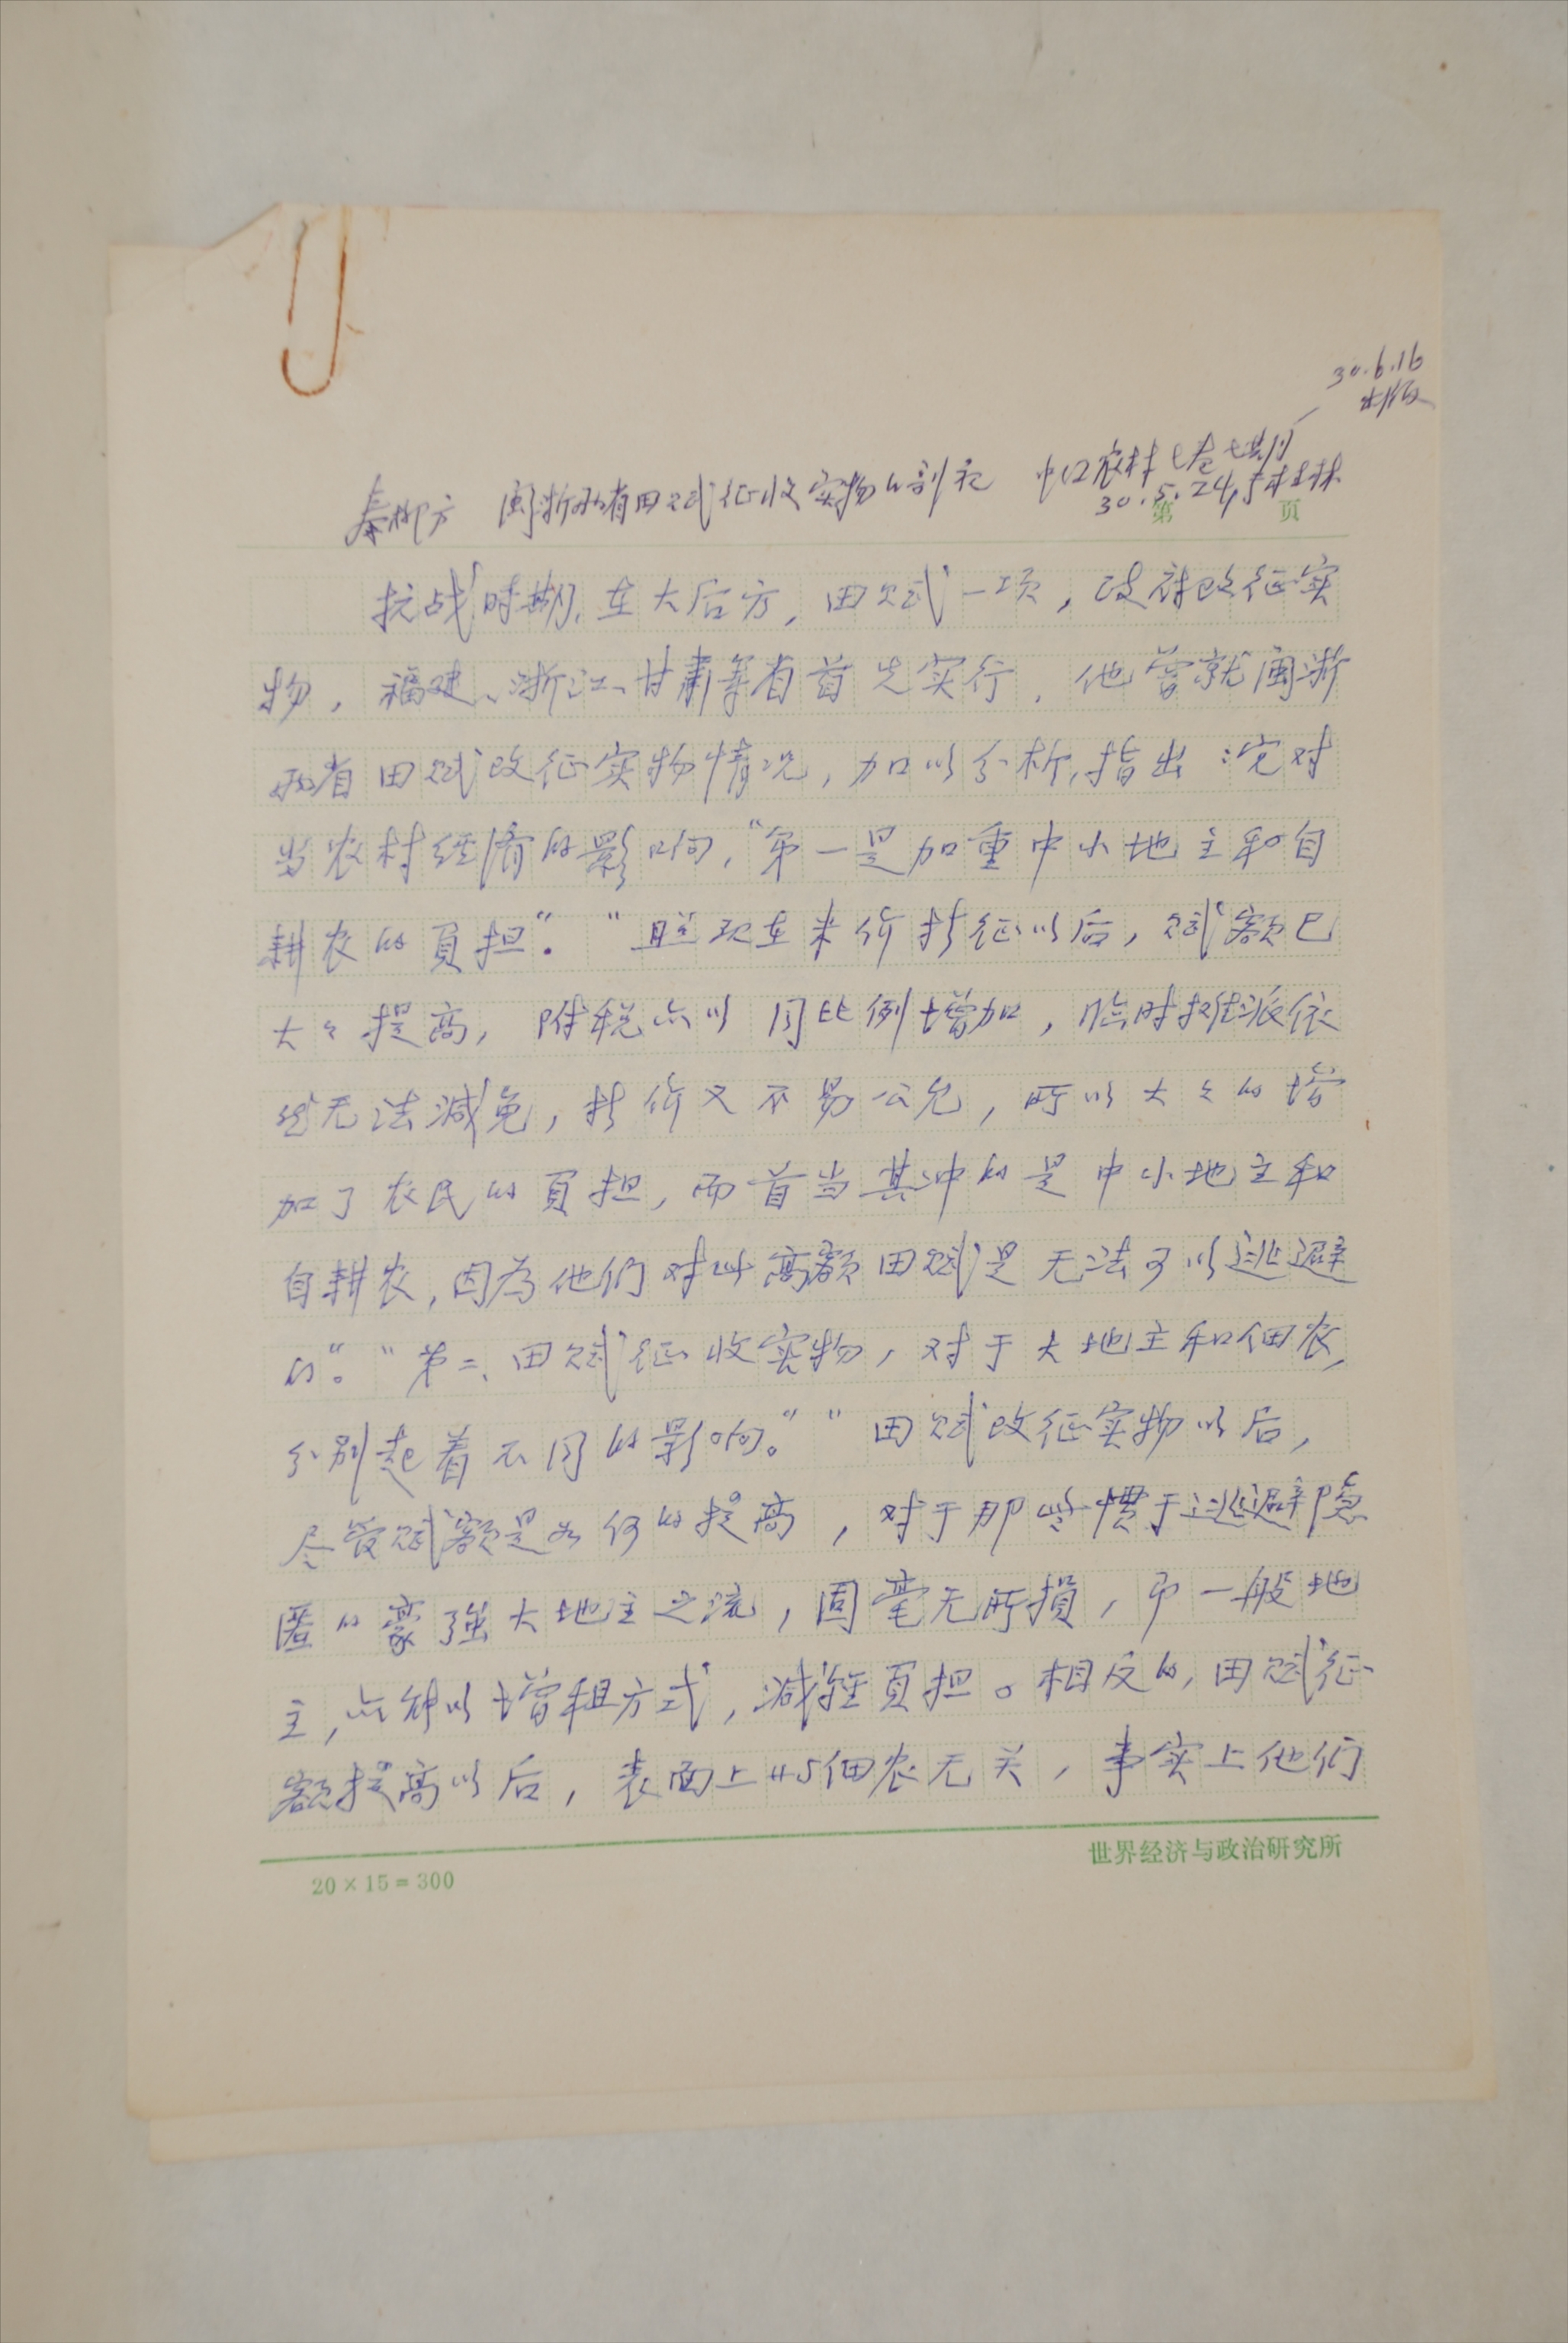 30.6.16
出版
秦柳方 闽浙两省田赋征收实物的剖视 中国农村七卷七期
30.5.24,于桂林
第 页
抗战时期,在大后方,田赋一项,改征实
物,福建、浙江、甘肃等省首先实行,他曾就闽浙
两省田赋改征实物情况,加以分析,指出:它对
当农村经济的影响,“第一是加重中小地主和自
耕农的負担”。“照现在米价折征以后,赋额已
大々提高,附税亦以同比例增加,临时摊派依
然无法减免,折价又不易公允,所以大々的增
加了农民的負担,而首当其冲的是中小地主和
自耕农,因为他们对此高额田赋是无法可以逃避
的”。“第二、田赋征收实物,对于大地主和佃农,
分别起着不同的影响。”“田赋改征实物以后,
尽管赋额是如何的提高,对于那些惯于逃避隐
匿的豪強大地主之流,固毫无所損,即一般地
主,亦能以增租方式,减轻負担。相反的,田赋征
额提高以后,表面上似与佃农无关,事实上他们
20×15=300
世界经济与政治研究所